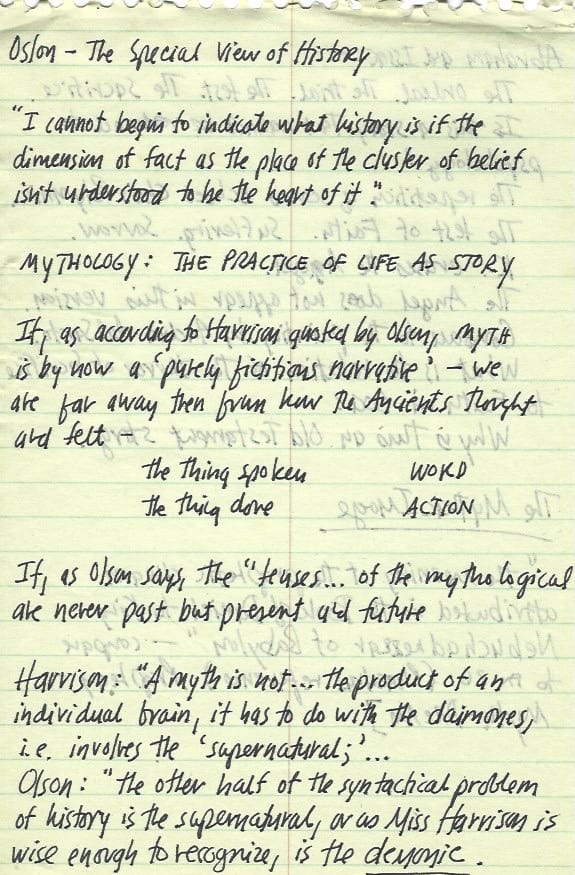 Oslon – The Special View of History
"I cannot begin to indicate what history is if the
dimension of fact as the place of the cluster of belief
isn't understood to be the heart of it."
MYTHOLOGY: THE PRACTICE OF LIFE AS STORY
If, as according to Harrison quoted by Olson, MYTH
is by now a 'purely fictitious narrative' – we
are far away then from how the Ancients thought
and felt –
the thing spoken WORD
the thing done ACTION
If, as Olson says, the "tenses... of the mythological
are never past but present and future
Harrison: "A myth is not... the product of an
individual brain, it has to do with the daimones,
i.e. involves the 'supernatural;'...
Olson: "the other half of the syntactical problem
of history is the supernatural, or as Miss Harrison is
wise enough to recognize, is the demonic.